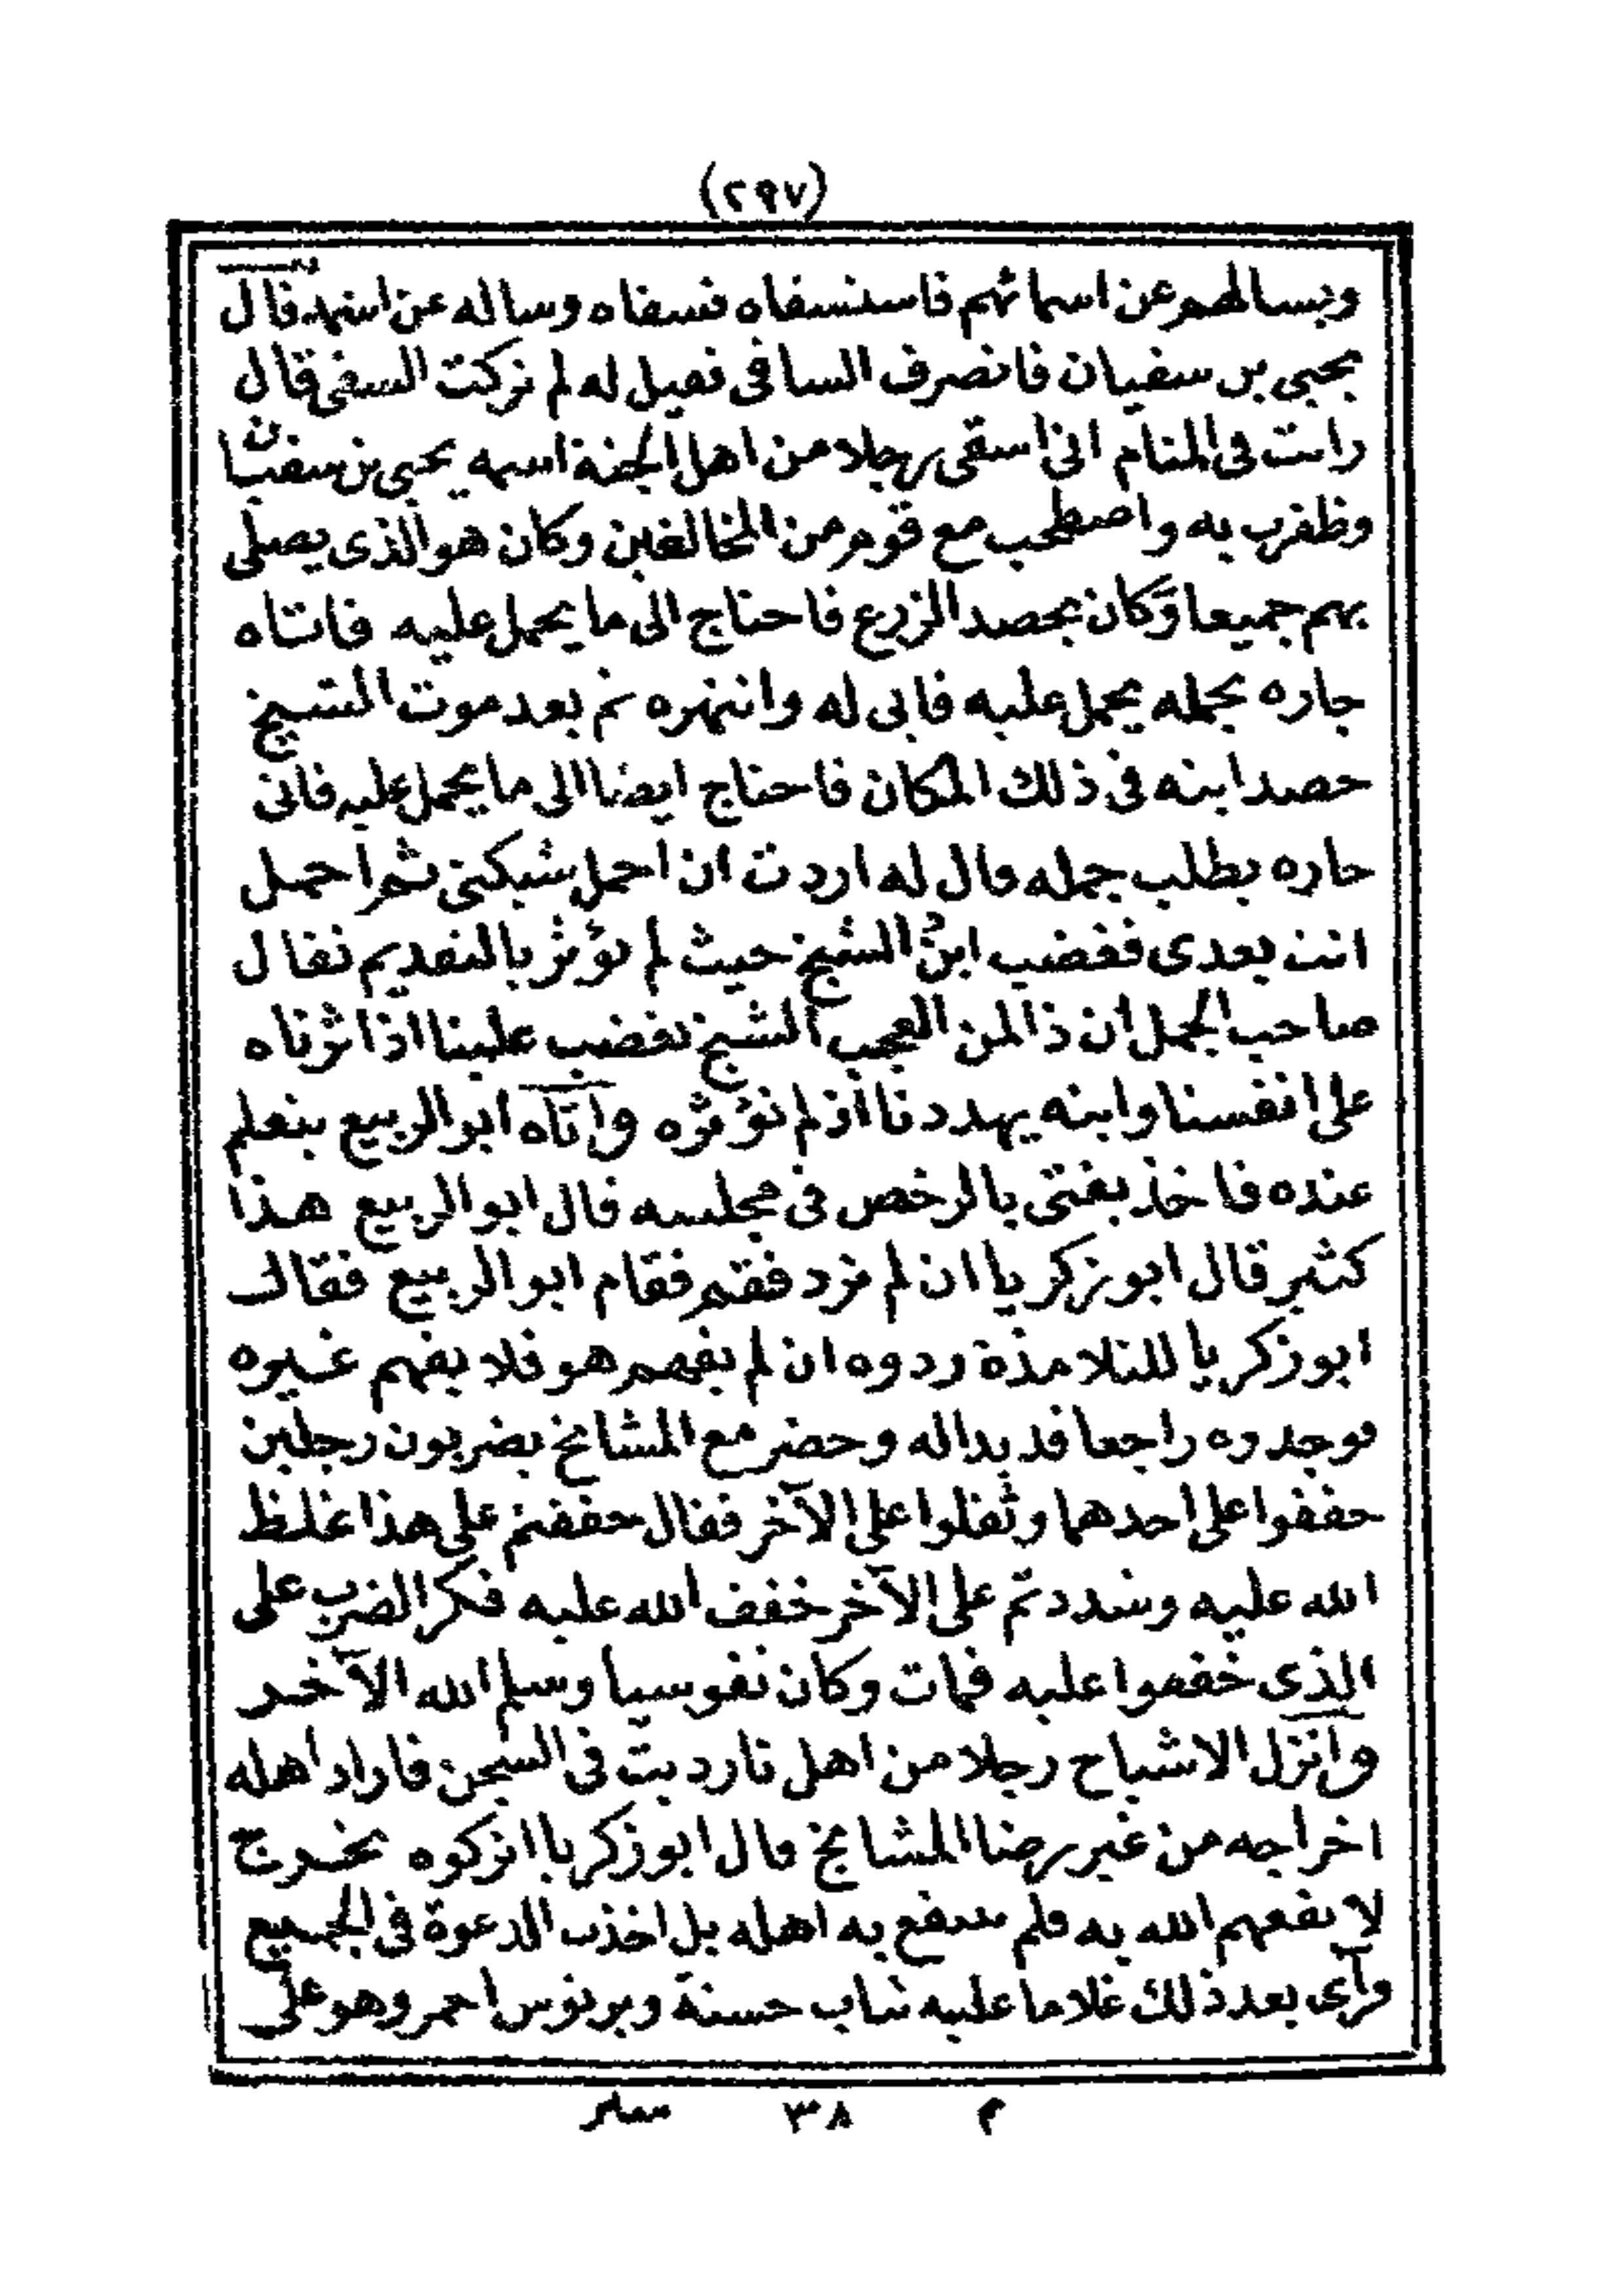 (٢٩٧)
ويسالهم عن اسمائهم فاستسقاه فسقاه وساله عن اسمه قال
يحيى بن سفيان فانصرف الساقى فقيل له لم تركت السقى قال
رايت فى المنام انى اسقى رجلا من اهل الجنة اسمه يحيى بن سفيان
وظفرت به واصطحب مع قوم من المخالفين وكان هو الذى يصلى
بهم جميعا وكان يحصد الزرع فاحتاج الى ما يحمل عليه فاتاه
جاره بجمله يحمل عليه فابى له وانتهره ثم بعد موت الشيخ
حصد ابنه فى ذلك المكان فاحتاج ايضا الى ما يحمل عليه فاتى
جاره يطلب جمله قال له اردت ان احمل شبكتى ثم احمل
انت بعدى فغضب ابن الشيخ حيث لم يؤثر بالتقديم فقال
صاحب الجمل ان ذا لمن العجب الشيخ تغضب علينا اذ اثرناه
على انفسنا وابنه يهددنا اذ لم نؤثره واتاه ابو الربيع يتعلم
عنده فاخذ يفتى بالرخص فى مجلسه قال ابو الربيع هذا
كثير قال ابو زكريا ان لم ترد فقم فقام ابو الربيع فقال
ابو زكريا للتلامذة ردوه ان لم يفهم هو فلا يفهم غيره
فوجدوه راجعا قد بدا له وحضر مع المشايخ يضربون رجلين
خففوا على احدهما وثقلوا على الآخر فقال خففتم على هذا غلظ
الله عليه وشددتم على الآخر خفف الله عليه فكر الضرب على
الذى خففوا عليه فمات وكان نفوسيا وسلم الله الآخر
وانزل الاشياخ رجلا من اهل تارديت فى السجن فاراد اهله
اخراجه من غير رضا المشايخ قال ابو زكريا اتركوه يخرج
لا نفعهم الله به فلم ينتفع به اهله بل اخذت الدعوة فى الجميع
ورآى بعد ذلك غلاما عليه ثياب حسنة وبرنوس احمر وهو على
م ٣٨ سير